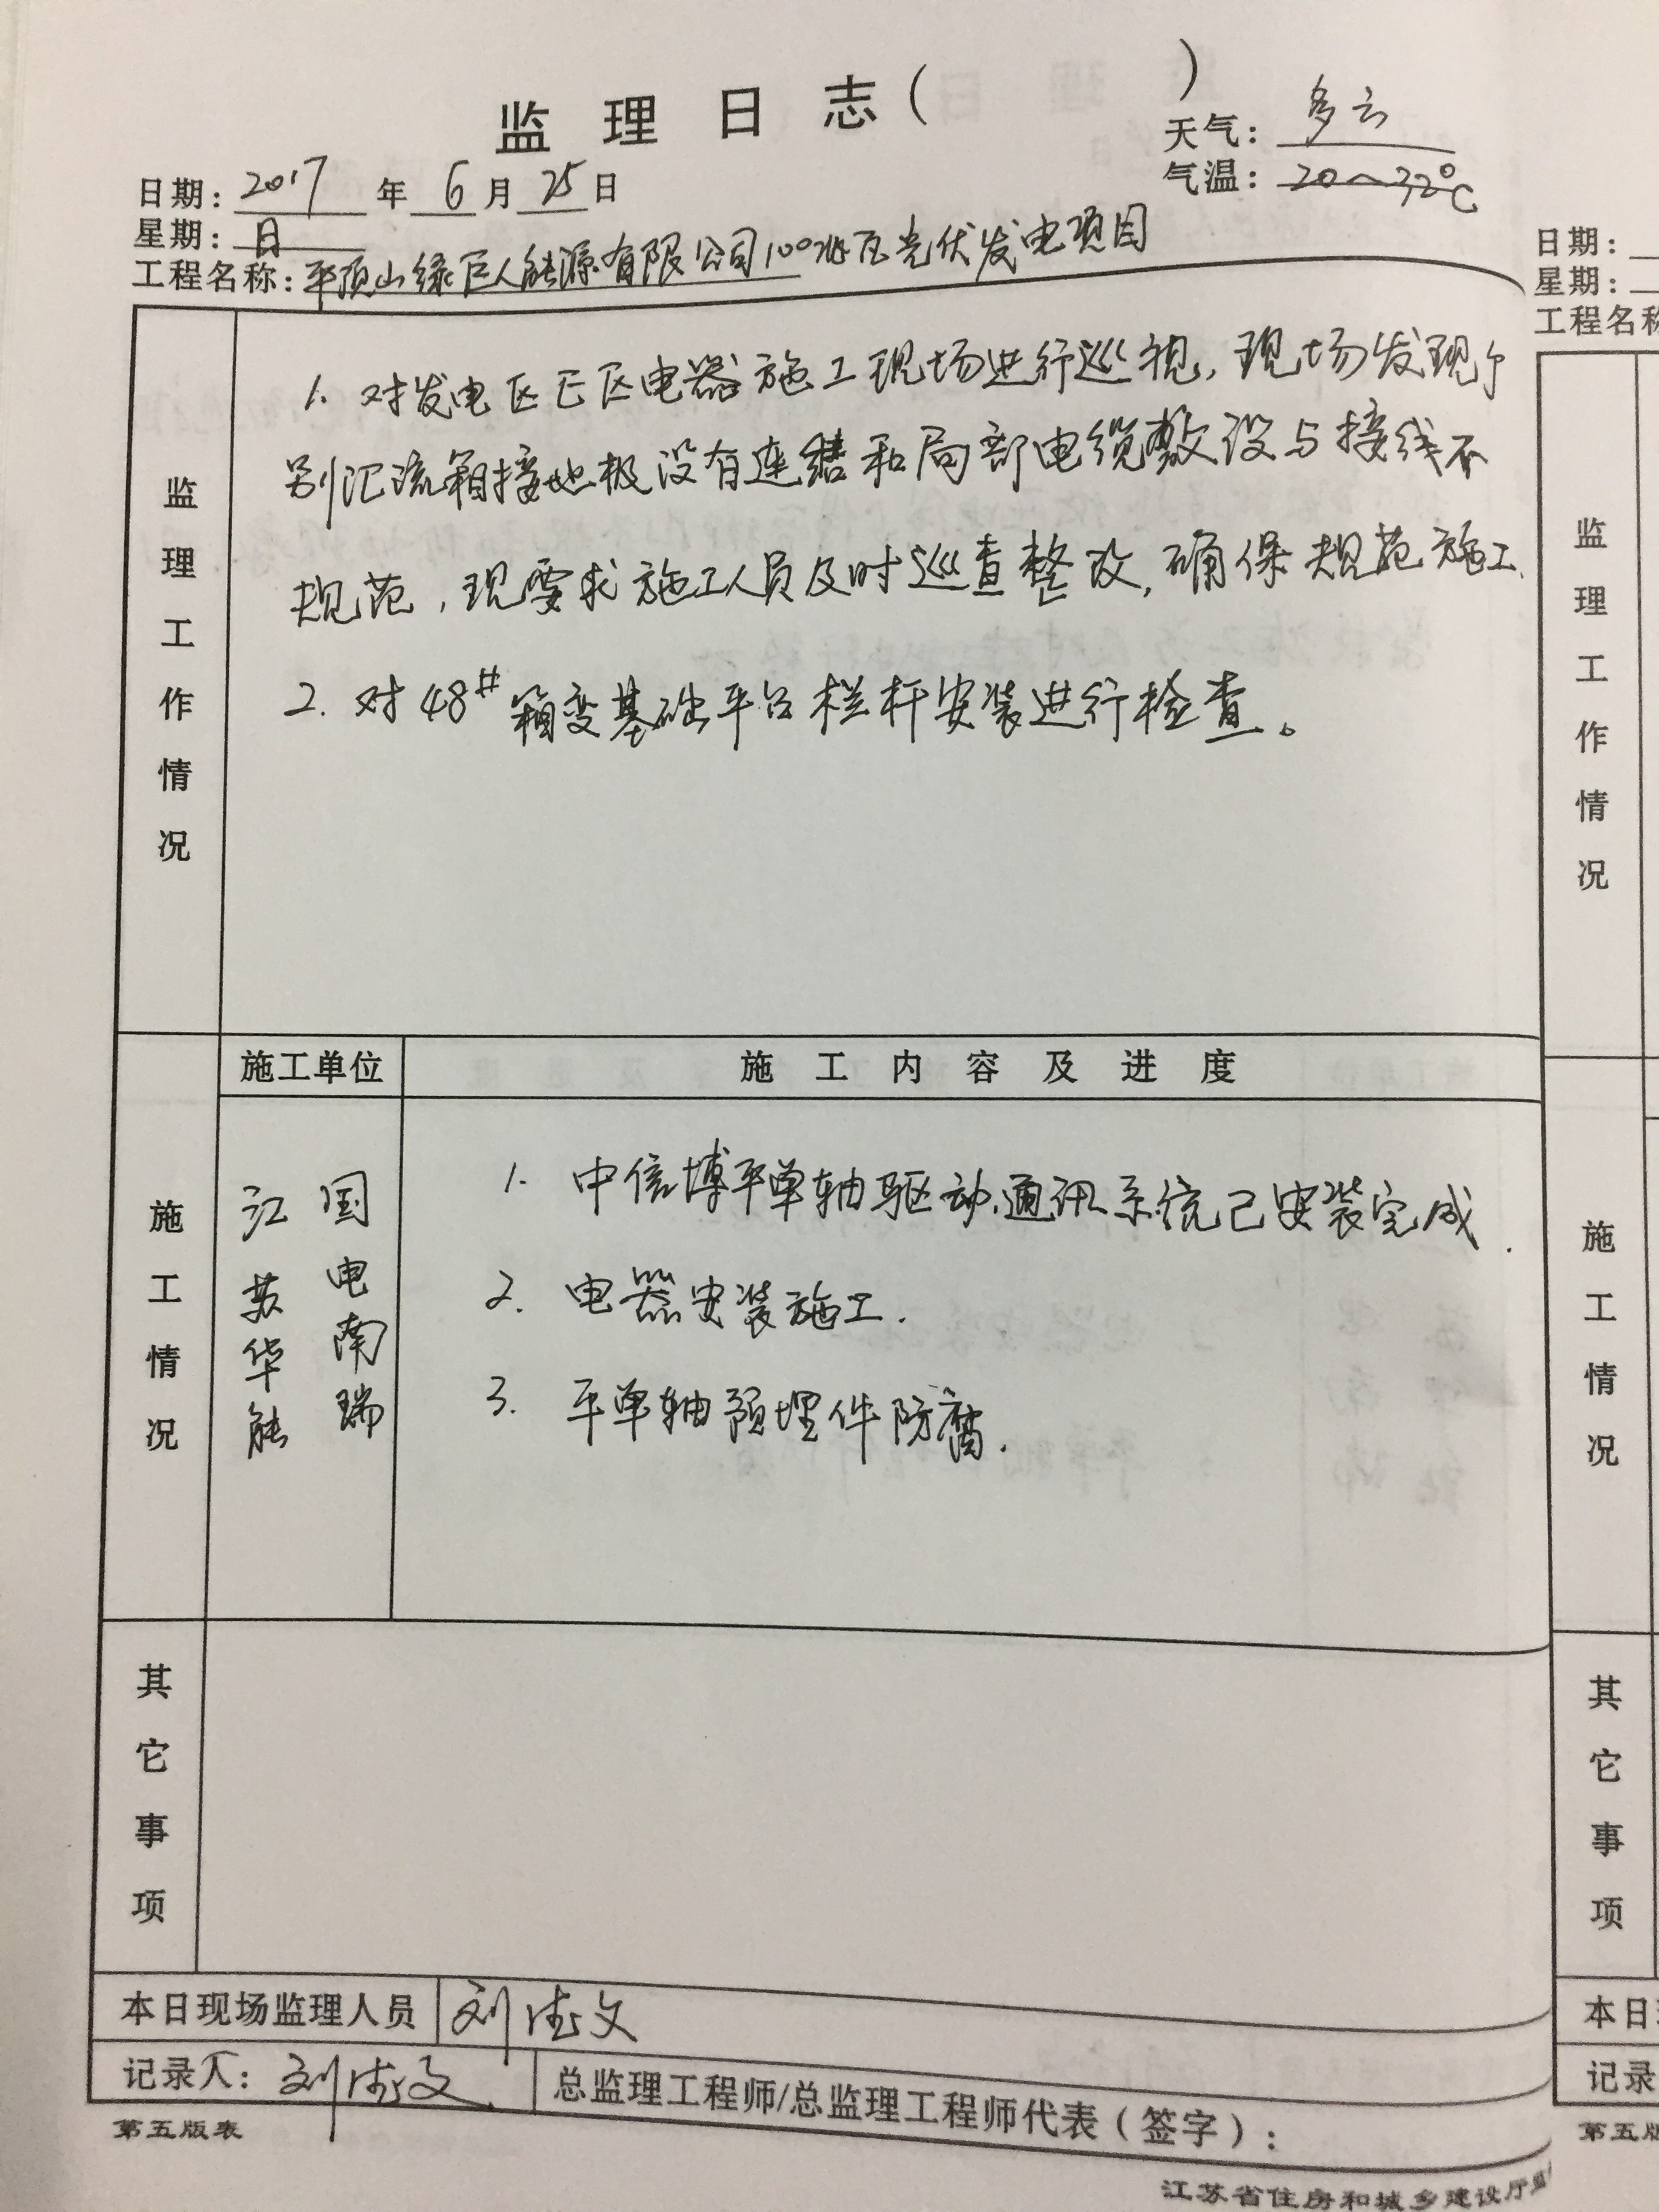 监理日志（ ）
天气：多云
日期：2017年6月25日
气温：20～32℃
星期：日
工程名称：平顶山绿巨人能源有限公司100兆瓦光伏发电项目
监理工作情况
1. 对发电区E区电器施工现场进行巡视，现场发现个
别汇流箱接地极没有连接和局部电缆敷设与接线不
规范，现要求施工人员及时巡查整改，确保规范施工.
2. 对48#箱变基础平台栏杆安装进行检查。
施工单位 施工内容及进度
施工情况
国电南瑞
江苏华能
1. 中信博平单轴驱动.通讯系统已安装完成.
2. 电器安装施工.
3. 平单轴预埋件防腐.
其它事项
本日现场监理人员 刘
记录人：刘 总监理工程师/总监理工程师代表（签字）：
第五版表
江苏省住房和城乡建设厅监
日期：
星期：
工程名称
监理工作情况
施工情况
其它事项
本日
记录
第五版